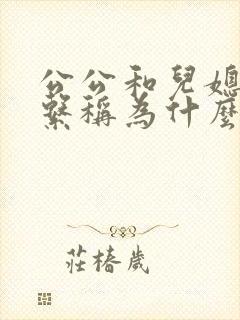 公公和兒媳
繫稱為什麼
莊椿歲